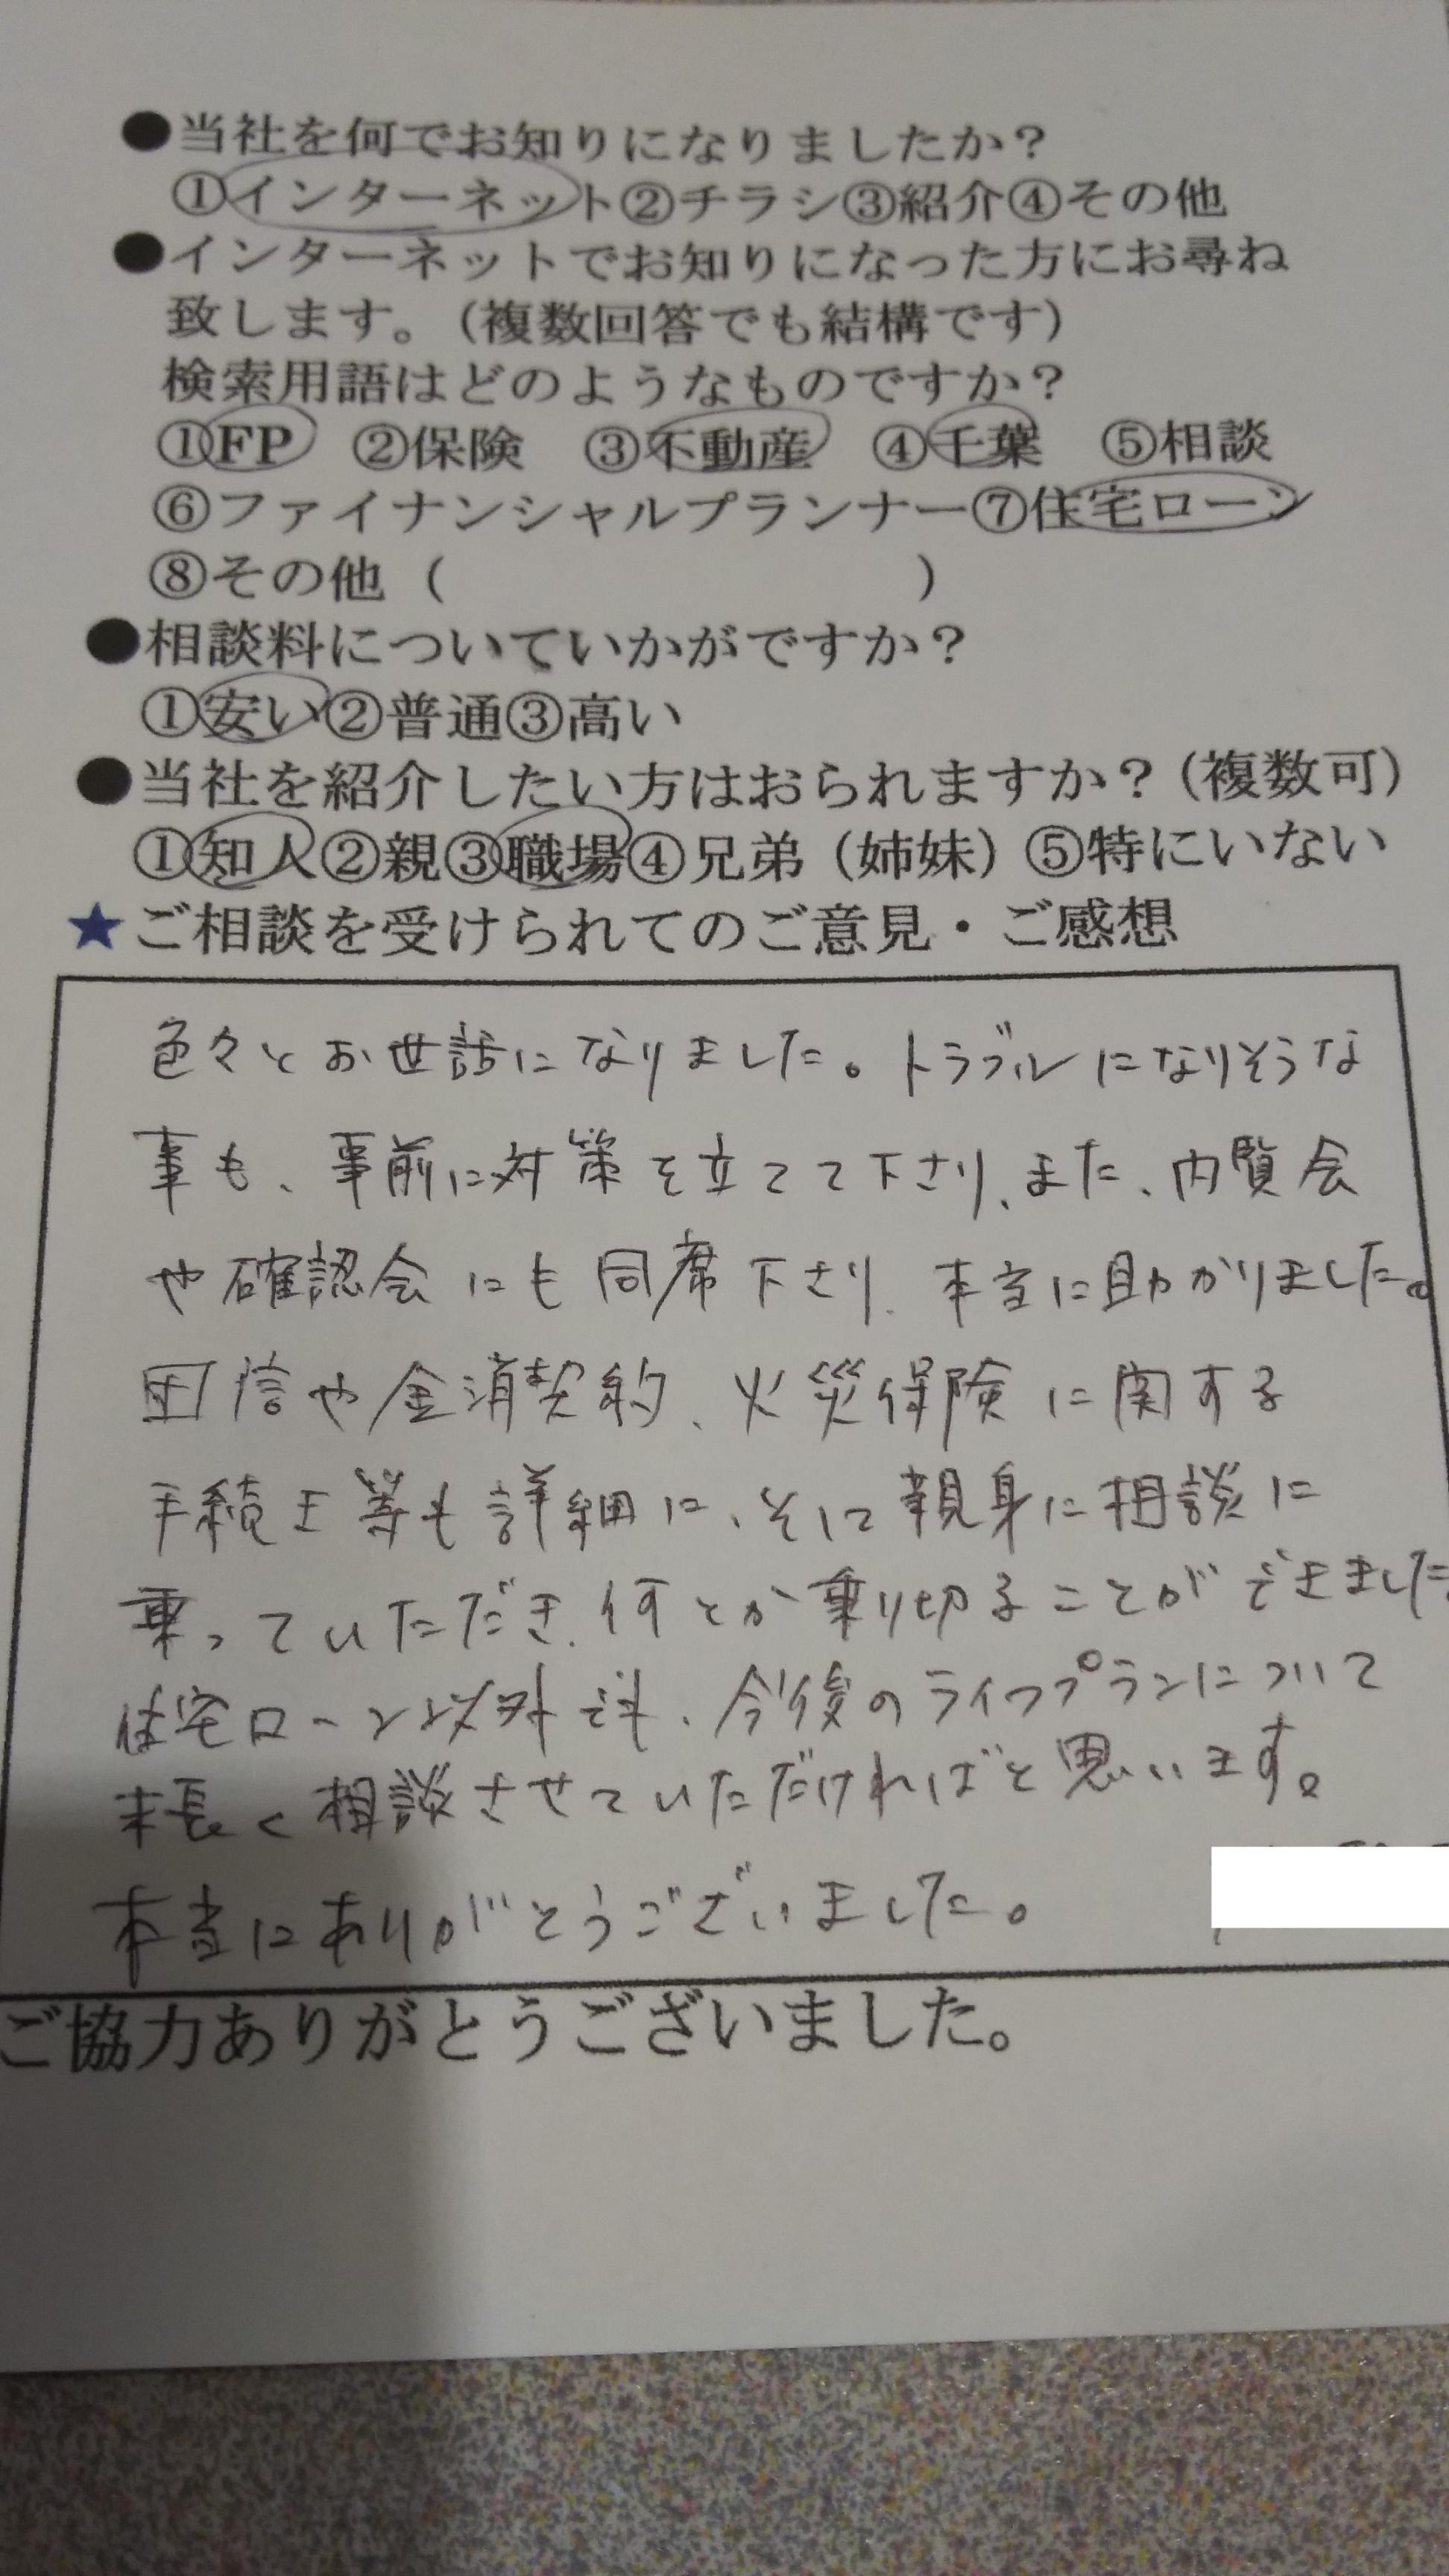 ●当社を何でお知りになりましたか？
①インターネット②チラシ③紹介④その他
●インターネットでお知りになった方にお尋ね
致します。（複数回答でも結構です）
検索用語はどのようなものですか？
①FP ②保険 ③不動産 ④千葉 ⑤相談
⑥ファイナンシャルプランナー⑦住宅ローン
⑧その他（ ）
●相談料についていかがですか？
①安い②普通③高い
●当社を紹介したい方はおられますか？（複数可）
①知人②親③職場④兄弟（姉妹）⑤特にいない
★ご相談を受けられてのご意見・ご感想
色々とお世話になりました。トラブルになりそうな
事も、事前に対策を立てて下さり、また、内覧会
や確認会にも同席下さり、本当に助かりました。
団信や金消契約、火災保険に関する
手続き等も詳細に、そして親身に相談に
乗っていただき、何とか乗り切ることができました
住宅ローン以外でも、今後のライフプランについて
末長く相談させていただければと思います。
本当にありがとうございました。
ご協力ありがとうございました。